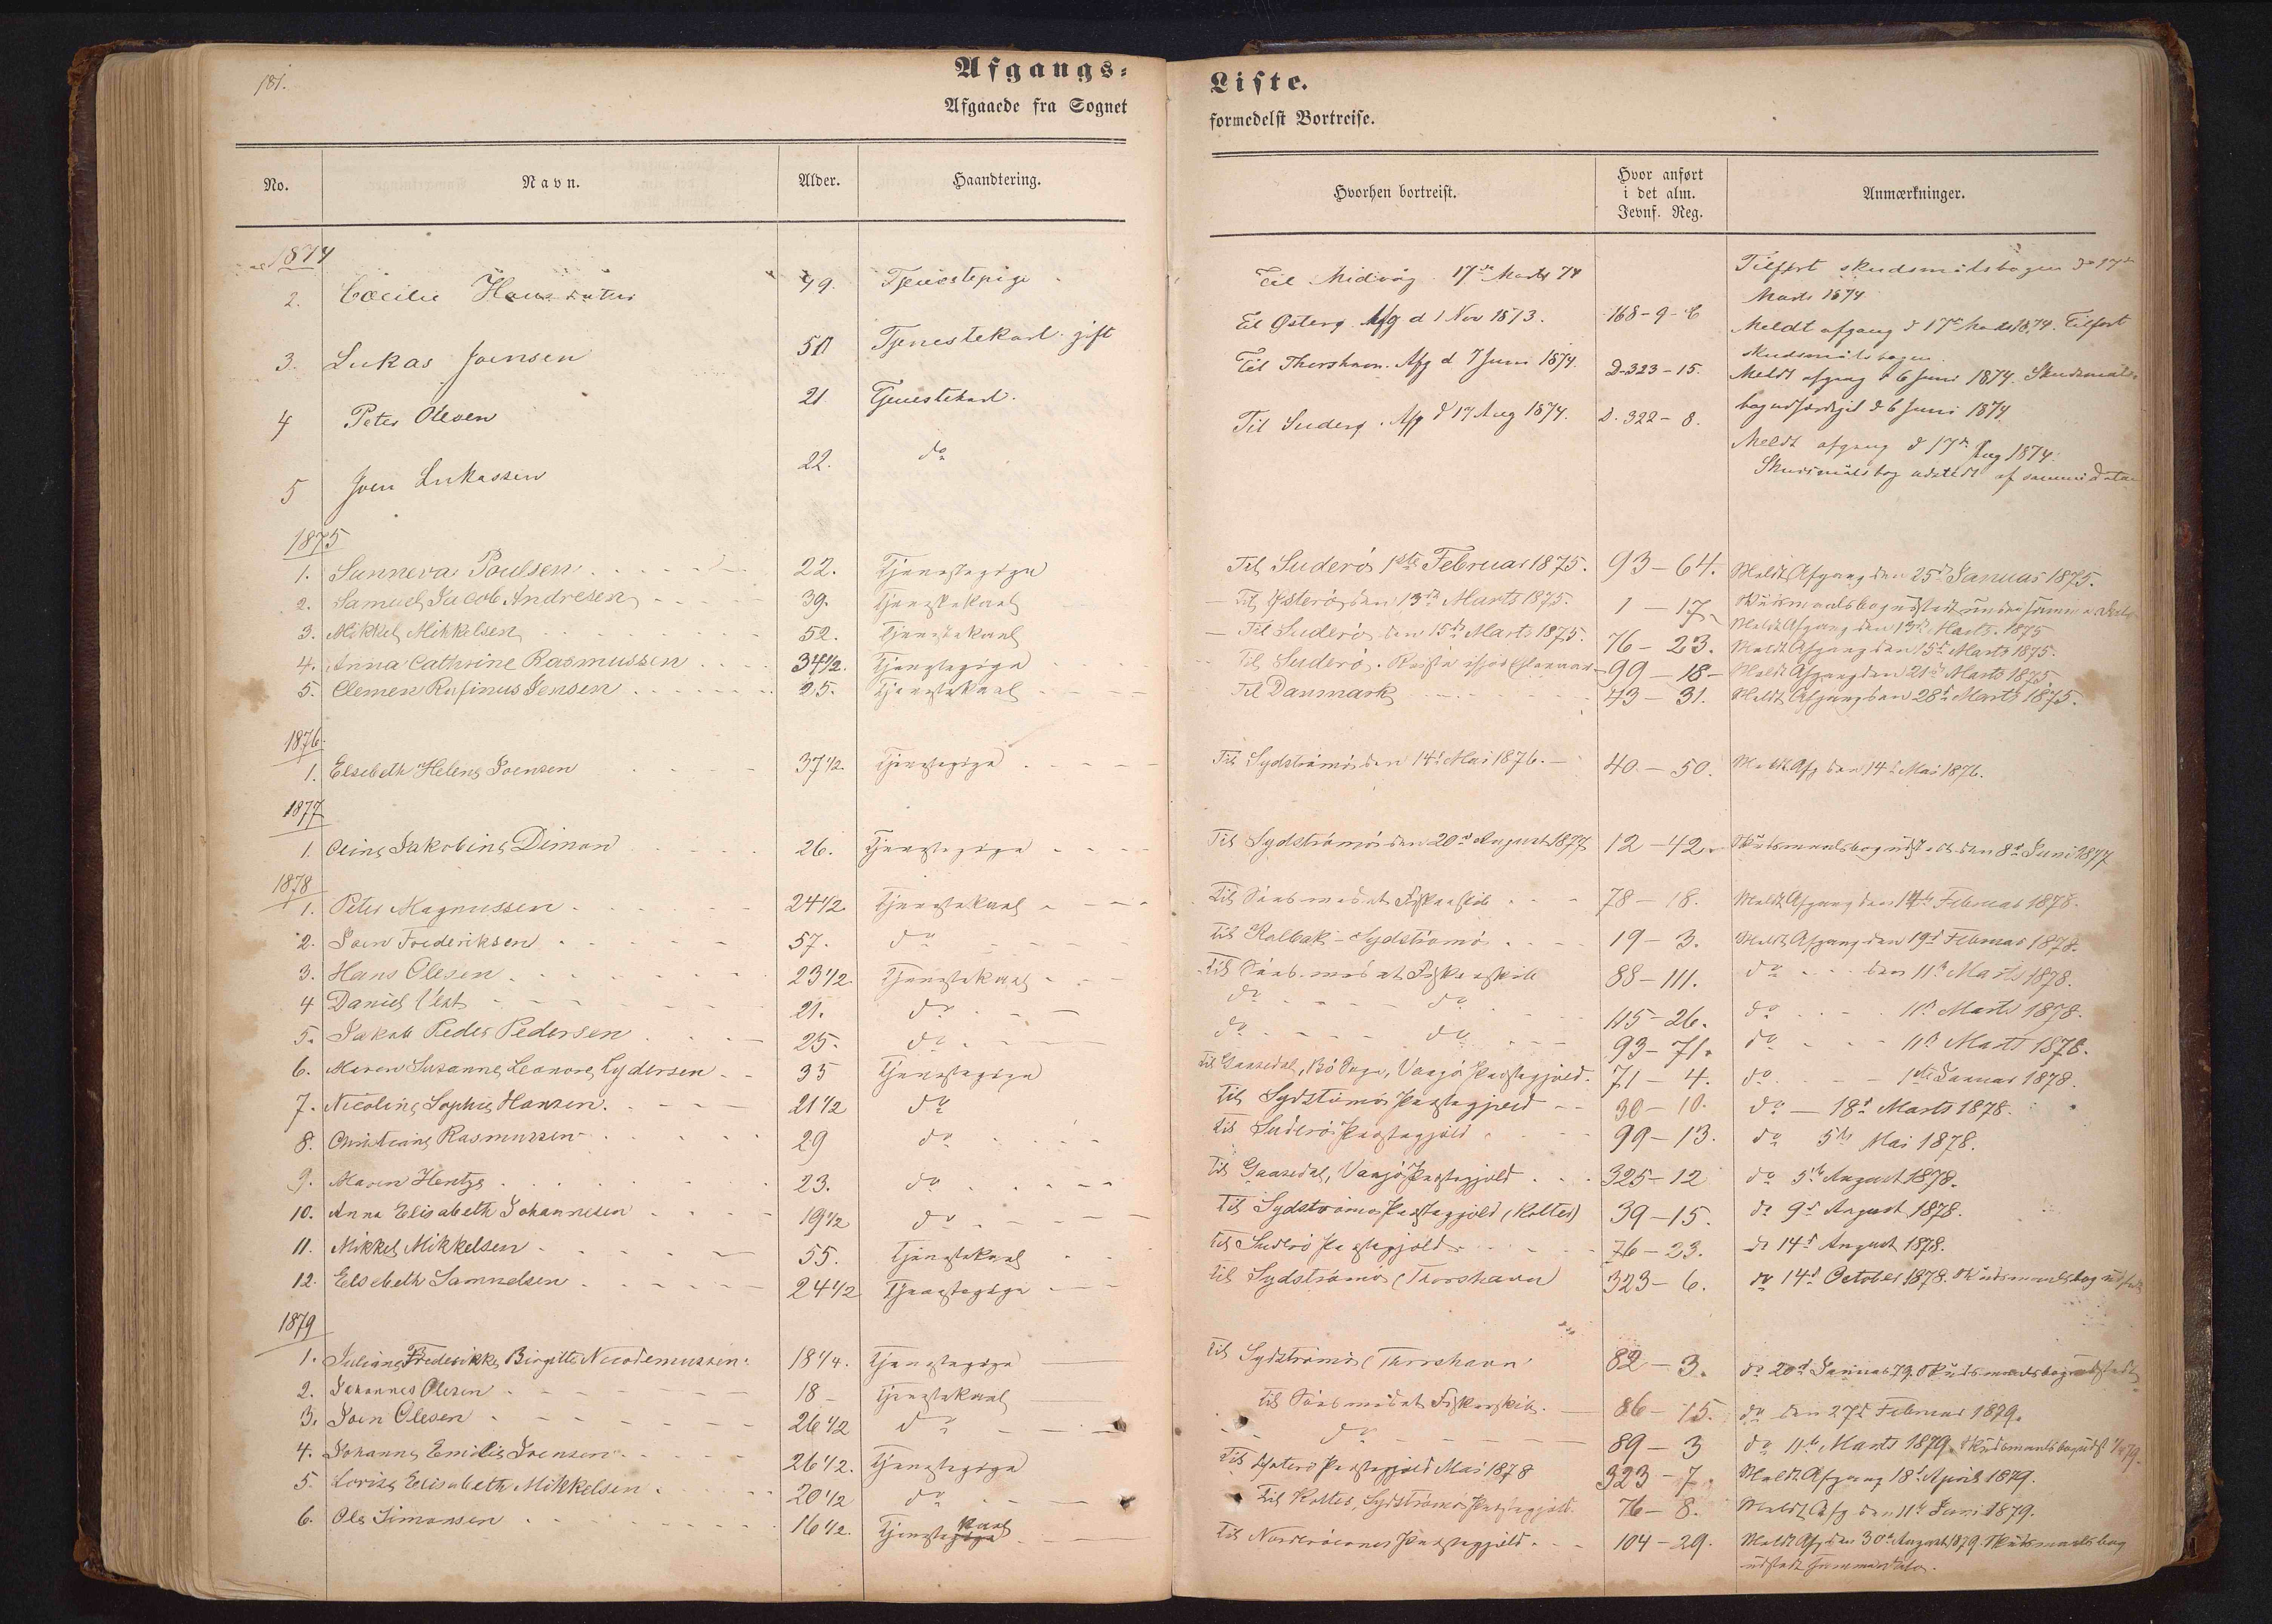 181.
Afgangs-
Afgaaede fra Sognet
No. Navn. Alder. Haandtering.
1874
2. Cæcilie Hansdatter 49. Tjenestepige
3. Lukas Joensen 50 Tjenestekarl. gift
4 Peter Olesen 21 Tjenestekarl.
5 Joen Lukassen 22. do
1875
1. Sunneva Poulsen 22. Tjenestepige
2. Samuel Jacob Andresen 39. Tjenestekarl
3. Mikkel Mikkelsen 52. Tjenestekarl
4. Anna Cathrine Rasmussen 34 1/2. Tjenestepige
5. Clemen Rufinus Jensen 25. Tjenestekarl
1876
1. Elsebeth Helene Joensen 37 1/2. Tjenestepige
1877
1. Oline Jakobine Dimon 26. Tjenestepige
1878
1. Peter Magnussen 24 1/2 Tjenestekarl
2. Joen Frederiksen 57. do
3. Hans Olesen 23 1/2. Tjenestekarl
4 Daniel 21. do
5. Jakob Peder Pedersen 25. do
6. Maren Susanne Leonore Lydersen 35 Tjenestepige
7. Nicoline Sophie Hansen. 21 1/2 do
8. Christiane Rasmussen 29 do
9. Maren Hentze 23. do
10. Anna Elisabeth Johannesen 19 1/2 do
11. Mikkel Mikkelsen 55. Tjenestekarl
12. Elsebeth Samuelsen 24 1/2 Tjenestepige
1879
1. Juliane Frederikke Birgitte Nicodemussen. 18 1/4. Tjenestepige
2. Johannes Olesen 18 Tjenestekarl
3. Joen Olesen 26 1/2 do
4. Johanne Emilie Joensen 26 1/2. Tjenestepige
5. Lovise Elisabeth Mikkelsen 20 1/2 do
6. Ole Simonsen 16 1/2. Tjenestekarl
Liste.
formedelst Bortreise.
Hvorhen bortreist. Hvor anført i det alm. Jevnf. Reg. Anmærkninger.
Til Midvåg 17de Marts 74 Tilført skudsmålsbogen d. 17de
Marts 1874
Til Østerø. Afg d 1 Nov 1873. 168-9-6 Meldt afgang d 17de Marts 1874. Tilført
skudsmålsbogen.
Til Thorshavn. Afg d 7 Juni 1874. D-323-15. Meldt afgang d 6 Juni 1874. Skudsmåls
bog udfærdiget d 6 Juni 1874
Til Suderø. Afg d 17 Aug 1874. D. 322-8. Meldt afgang d 17de Aug 1874.
Skudsmålsbog udstedt af samme dato
Til Suderö 1ste Februar 1875. 93-64. Meldt Afgang den 25de Januar 1875.
Skudsmaalsbog udstedt under samme Dato
Til Østerö den 13de Marts 1875. 1-17. Meldt Afgang den 13de Marts. 1875
Til Suderö den 15de Marts 1875. 76-23. Meldt Afgang den 15de Marts 1875.
Til Suderö. Reiste 99-18- Meldt Afgang den 21de Marts 1875
Til Danmark 73-31. Meldt Afgang den 28de Marts 1875.
Til Sydströmö den 14de Mai 1876. 40-50. Meldt Afg den 14de Mai 1876.
Til Sydströmö den 20de August 1877 12-42. Skudsmaalsbog udstedt den 8de Juni 1877
Til Söes med et Fiskerskib 78-18. Meldt Afgang den 14de Februar 1878.
Til Kalbak - Sydströmö 19-3. Meldt Afgang den 19de Februar 1878.
Til Söes med et Fiskerskib 88-111. do den 11te Marts 1878.
do do 115-26. do 11te Marts 1878.
do do 93-71. do 11te Marts 1878.
Til Gaasedal, Bö Sogn, Vaagö Præstegjæld. 71-4. do 1ste Januar 1878.
Til Sydströmö Præstegjæld 30-10. do 18de Marts 1878.
Til Suderö Præstegjæld 99-13. do 5te Mai 1878.
Til Gaasedal, Vaagö Præstegjæld 325-12 do 5te August 1878.
Til Sydströmö Præstegjæld (Kolter) 39-15. do 9de August 1878.
Til Suderö Præstegjæld 76-23. do 14de August 1878.
Til Sydströmö (Thorshavn) 323-6. do 14de October 1878. Skudsmaalsbog udstedt
Til Sydströmö (Thorshavn 82-3. do 20de Januar 79. Skudsmaalsbog udstedt
Til Söes med et Fiskerskib. 86-15. do den 27de Februar 1879.
do 89-3 do 11te Marts 1879. Skudsmaalsbog udst
Til Østerö Præstegjæld Mai 1878 323-7. Meldt Afgang 18de April 1879.
Til Kolter, Sydströmö Præstegjæld. 76-8. Meldt Afg den 11te Juni 1879.
Til Norderöernes Præstegjæld. 104-29. Meldt Afg den 30te August 1879. Skudsmaalsbog
udstedt samme Dato.